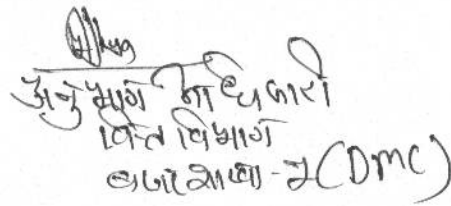 अनुभाग अधिकारी
वित्त विभाग
बजट शाखा-2 (DMC)